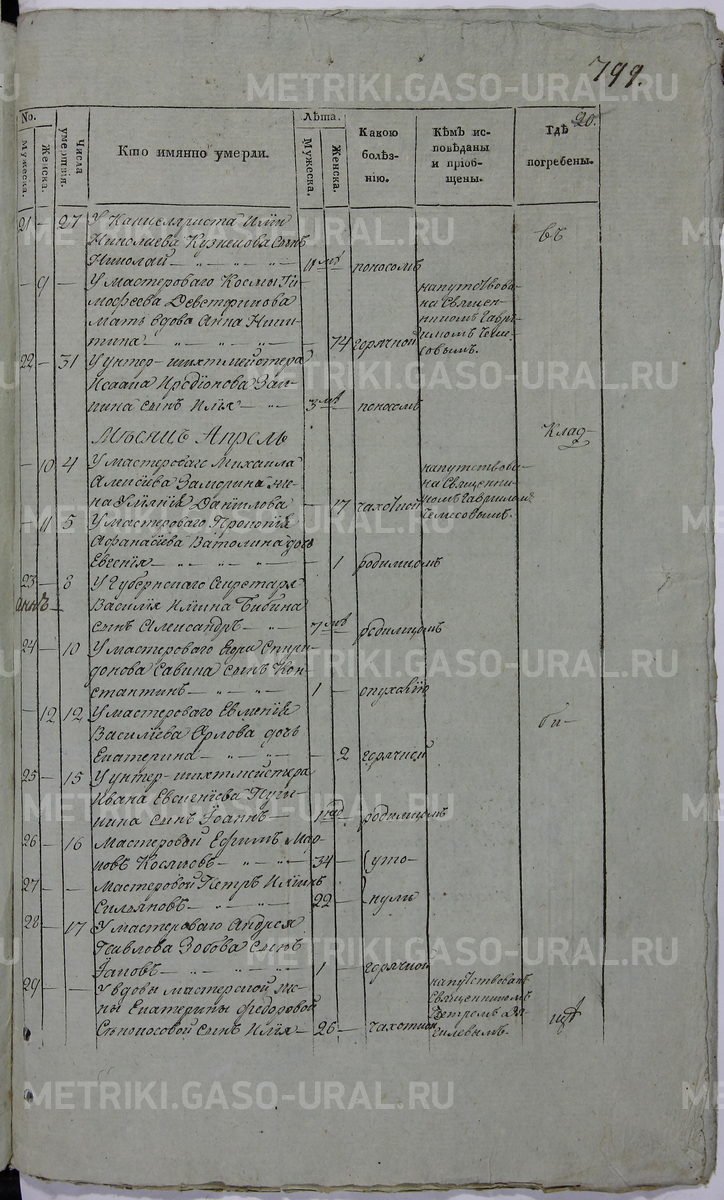 799.
20.
No.
Мужеска.
Женска.
Числа умертвія.
Кто имянно умерли.
Лѣта.
Мужеска.
Женска.
Какою болѣз-нію.
Кѣмъ ис-повѣданы и пріоб-щены.
Гдѣ погребены.
21 — 27 У Канцеляриста Ильи
Николаева Кузнецова сынъ
Николай — 11 мѣ — поносомъ
въ
— 9 — У мастероваго Космы Ти-
мофеева Девстеринова
мать вдова Анна Ники-
тина — 74 горячкой
напутствова-
на Священ-
никомъ Гаври-
иломъ
22 — 31 У унтер-шихтмейстера
Исаайа Иродіонова
сынъ Илья — 3 мѣ — поносомъ
Мѣсяцъ Апрѣль
Клад-
— 10 4 У мастероваго Михаила
Алексѣева Заморина же-
на Данилова — 17 чахоткой
напутствова-
на Священни-
комъ Гавриломъ
— 11 5 У мастероваго Прокопія
Афанасіева Ватолина дочь
Евгенія — 1 родимцомъ
23 — 8 У Губернскаго Секретаря
Василія Ильина Бибина
сынъ Александръ — 7 мѣ — родимцомъ
24 — 10 У мастероваго Егора Спири-
донова Савина сынъ Кон-
стантинъ — 1 — опухолію
— 12 12 У мастероваго Евгенія
Василіева Орлова дочь
Екатерина — 2 горячкой
би-
25 — 15 У унтер-шихтмейстера
Ивана Евгеніева
сынъ Іоаннъ — 1 нед — родимцомъ
26 — 16 Мастеровой Ефимъ Мар-
ковъ Косыхъ — 34 — уто-
27 — — Мастеровой Петръ Ильинъ
Сильяновъ — 22 — нули
28 — 17 У мастероваго Андрея
Павлова Зобова сынъ
Іаковъ — 1 — горячкой
29 — — У вдовы мастерской же-
ны Екатерины Федоровой
сынъ Илья — 26 — чахоткой
напутствованъ
Священникомъ
Петромъ
щѣ
METRIKI.GASO-URAL.RU